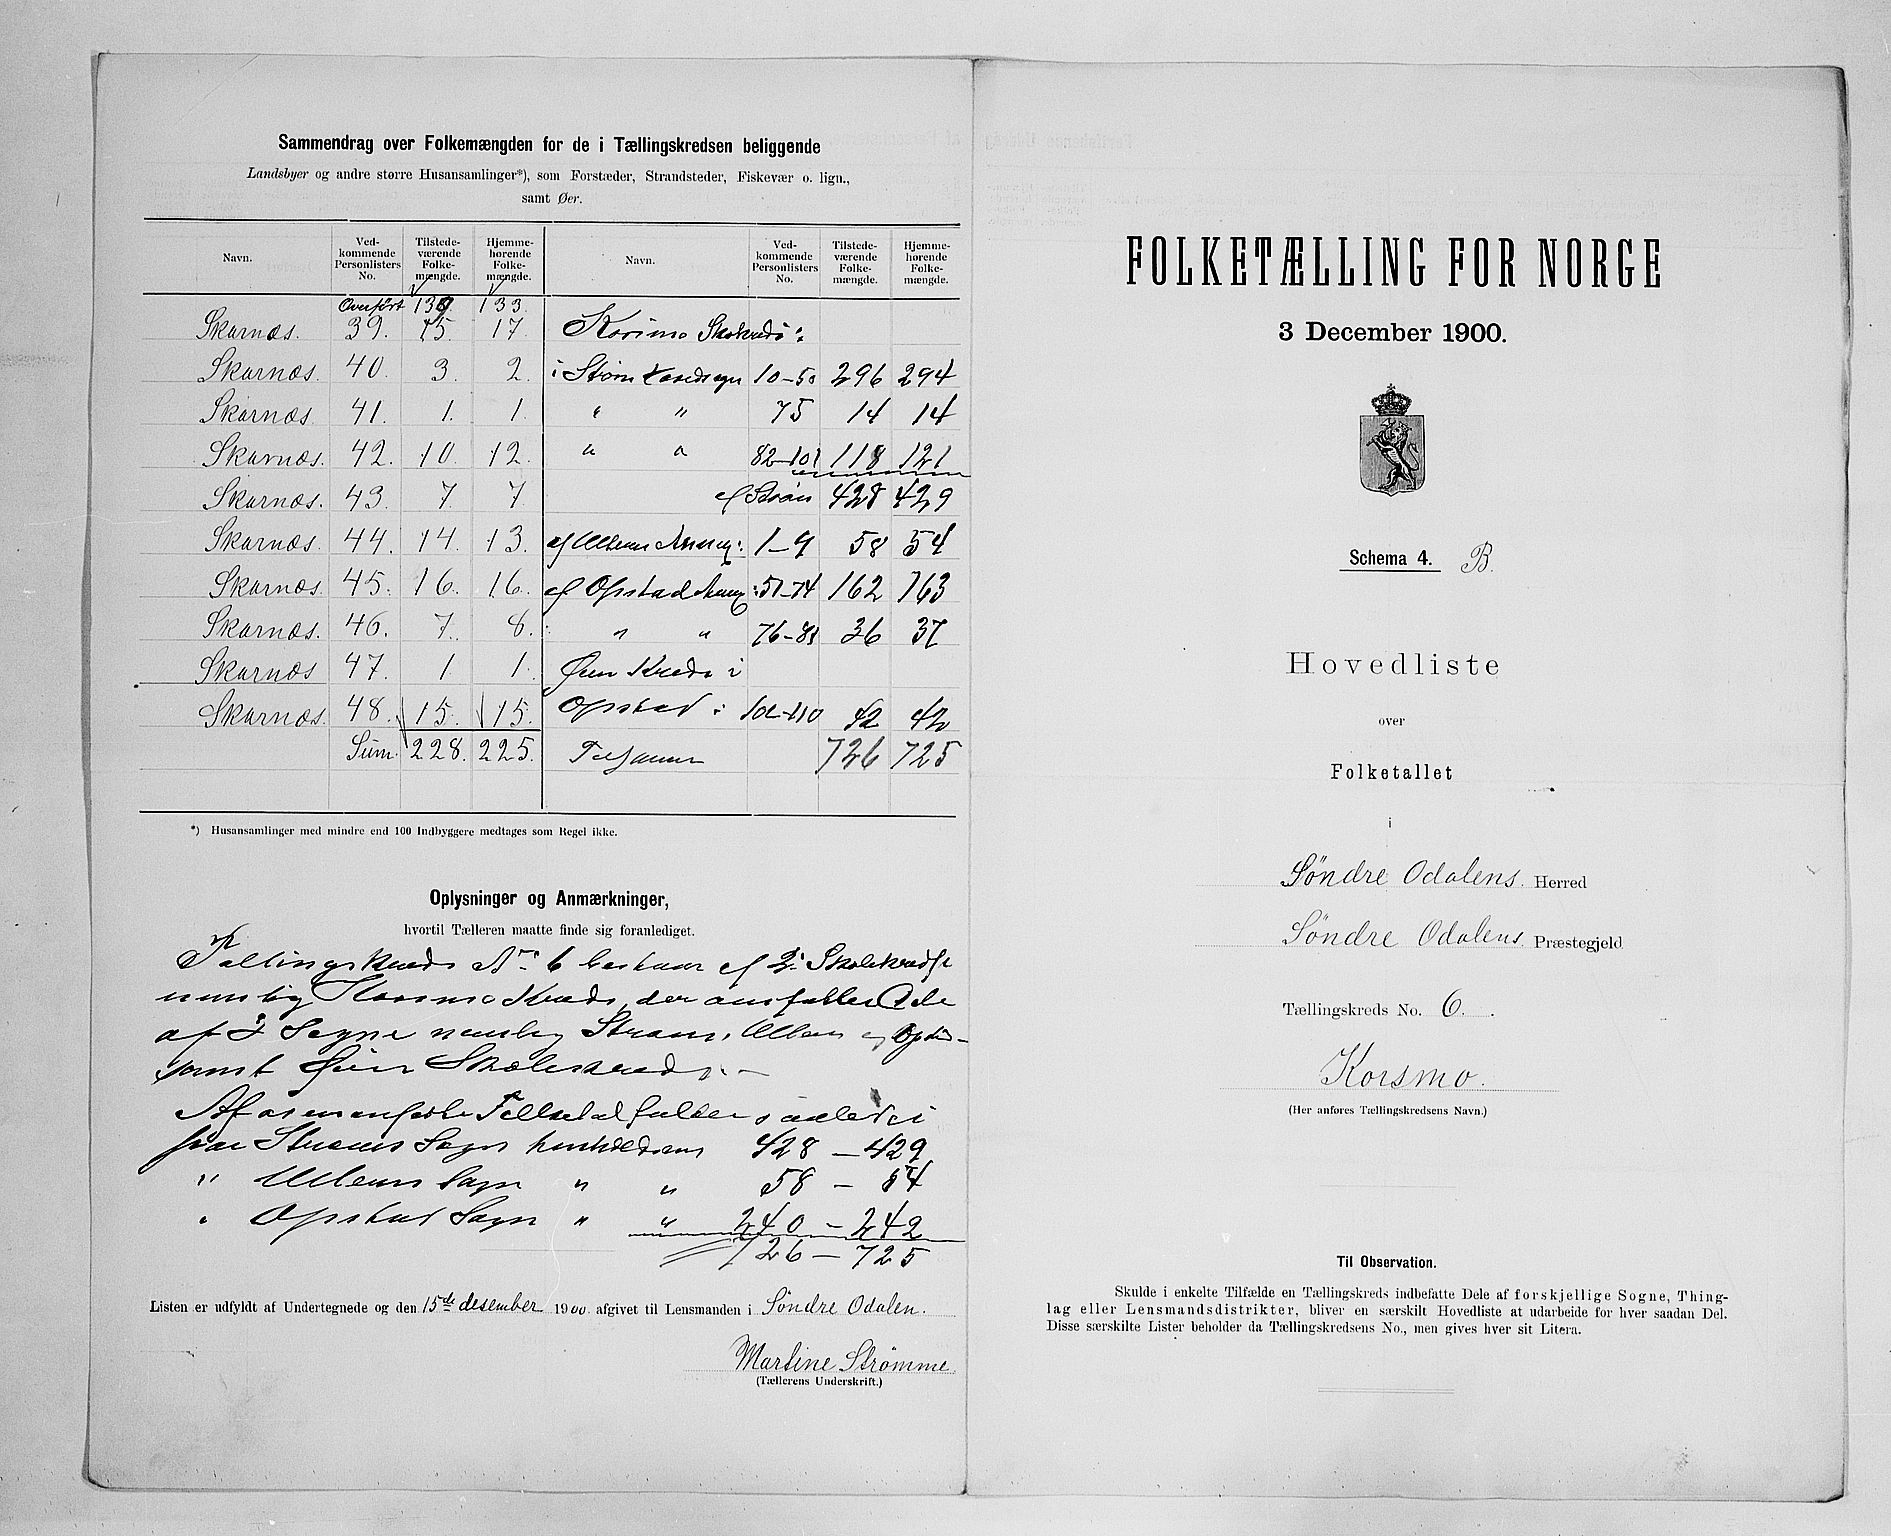 Sammendrag over Folkemængden for de i Tællingskredsen beliggende
Landsbyer og andre større Husansamlinger*), som Forstæder, Strandsteder, Fiskevær o. lign.,
samt Øer.
Navn. Ved-kommende Personlisters No. Tilstede-værende Folke-mængde. Hjemme-hørende Folke-mængde. Navn. Ved-kommende Personlisters No. Tilstede-værende Folke-mængde. Hjemme-hørende Folke-mængde.
Overført 139. 133.
Skarnæs. 39. 15. 17. Korsmo Skolekreds:
Skarnæs. 40. 3. 2. i Strøm 10-50 296 294
Skarnæs. 41. 1. 1. " " 75 14 14
Skarnæs. 42. 10. 12. " " 82-101 118 121
Skarnæs. 43. 7. 7. af Strøm 428 429
Skarnæs. 44. 14. 13. af Ullern Annex: 1-9 58 54
Skarnæs. 45. 16. 16. af Opstad Annex: 51-74 162 163
Skarnæs. 46. 7. 8. " " 76-81 36 37
Skarnæs 47. 1. 1. Kreds i
Skarnæs. 48. 15. 15. Opstad: 102-110 42 42
Sum. 228. 225. Tilsammen 726 725
*) Husansamlinger med mindre end 100 Indbyggere medtages som Regel ikke.
Oplysninger og Anmærkninger,
hvortil Tælleren maatte finde sig foranlediget.
Tællingskreds No 6 bestaar af 2 Skolekredse
nemlig Korsmo Kreds, der omfatter Dele
af 3 Sogne nemlig Strøm, Ullern og
samt Skolekreds.
Af Folketal falder saaledes
paa Strøms Sogn henholdsvis 428 — 429
" Ullern Sogn " " 58 — 54
" Opstad Sogn " " 240 — 242
726 — 725
Listen er udfyldt af Undertegnede og den 15de desember 1900 afgivet til Lensmanden i Søndre Odalen.
Martine Strømme
(Tællerens Underskrift.)
FOLKETÆLLING FOR NORGE
3 December 1900.
Schema 4. B.
Hovedliste
over
Folketallet
i
Søndre Odalens Herred
Søndre Odalens Præstegjeld
Tællingskreds No. 6.
Korsmo.
(Her anføres Tællingskredsens Navn.)
Til Observation.
Skulde i enkelte Tilfælde en Tællingskreds indbefatte Dele af forskjellige Sogne, Thing-
lag eller Lensmandsdistrikter, bliver en særskilt Hovedliste at udarbeide for hver saadan Del.
Disse særskilte Lister beholder da Tællingskredsens No., men gives hver sit Litera.